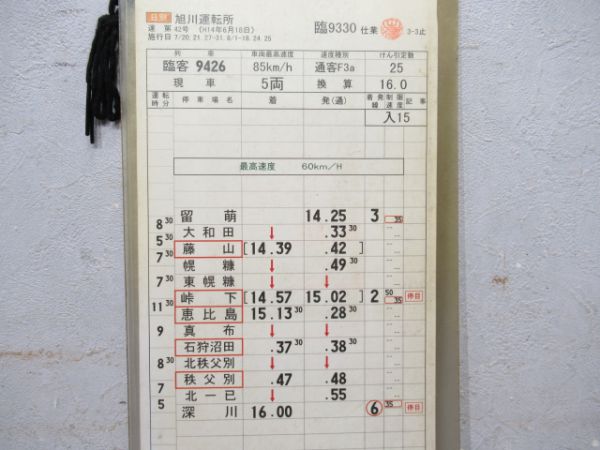 旭川運転所
達 第 42号 (H14年6月18日)
施行日 7/20.21 27-31.8/1-18.24.25
臨9330 仕業 3-3止
列 車 車両最高速度 速度種別 けん引定数
臨客 9426 85km/h 通客F3a 25
現 車 5両 換 算 16.0
運転時分 停車場名 着 発(通) 着発線 制限速度 記事
入15
最高速度 60km/H
留 萌 14.25 3 35
8 30
大和田 ↓ .33 30
5 30
藤 山 [14.39 .42 ]
7 30
幌 糠 ↓ .49 30
東幌糠 ↓ ↓
7 30
峠 下 [14.57 15.02 ] 2 50 35 停目
11 30
恵比島 15.13 30 .28 30
真 布 ↓ ↓
9
石狩沼田 .37 30 .38 30
北秩父別 ↓ ↓
8 30
秩父別 .47 .48
7
北一已 ↓ .55
5
深 川 16.00 6 35 停目